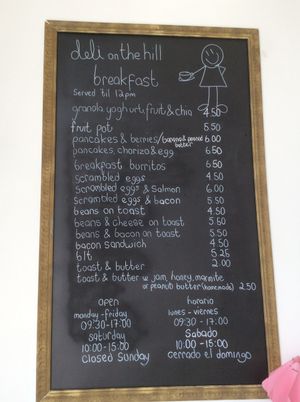 deli on the hill
breakfast
Served 'til 12pm
granola, yoghurt, fruit & chia 4.50
fruit pot 5.50
pancakes & berries/banana & peanut butter 6.00
pancakes, chorizo & egg 6.50
breakfast burritos 6.50
scrambled eggs 4.50
scrambled eggs & salmon 6.00
scrambled eggs & bacon 5.50
beans on toast 4.50
beans & cheese on toast 5.50
beans & bacon on toast 5.50
bacon sandwich 4.50
blt 5.25
toast & butter 2.00
toast & butter w jam, honey, marmite
or peanut butter (homemade) 2.50
open horario
monday-friday lunes - viernes
09:30-17:00 09:30 - 17:00
saturday Sabado
10:00-15:00 10:00-15:00
closed Sunday cerrado el domingo